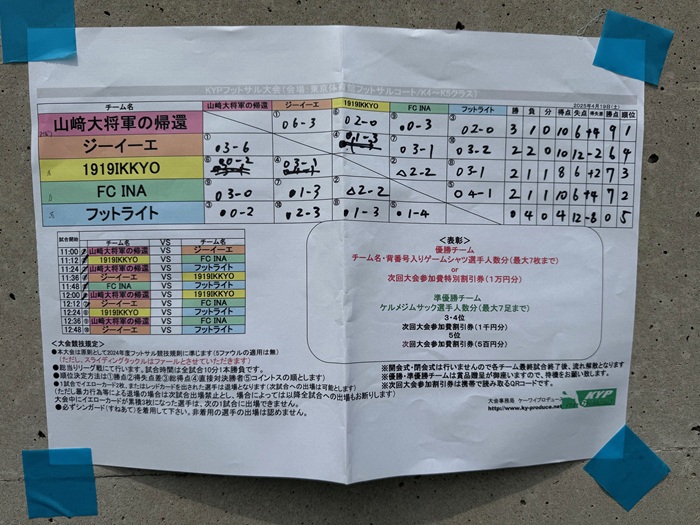 KYPフットサル大会(会場:東京体育館フットサルコート/K4~K5クラス)
2025年4月19日(土)
チーム名 山﨑大将軍の帰還 ジーイーエ 1919IKKYO FC INA フットライト 勝 負 分 得点 失点 得失差 勝点 順位
山﨑大将軍の帰還 ① 06-3 ⑥ 02-0 ⑨ 0-3 ③ 02-0 3 1 0 10 6 +4 9 1
ジーイーエ ① 03-6 ④ 1-3 ⑦ 03-1 ⑩ 03-2 2 2 0 10 12 -2 6 4
1919IKKYO ⑥ 0-2 ④ 03-1 ② △2-2 ⑧ 03-1 2 1 1 8 6 +2 7 3
FC INA 03-0 ⑦ 01-3 ② △2-2 ⑤ 04-1 2 1 1 10 6 +4 7 2
フットライト ③ 00-2 ⑩ 02-3 ⑧ 01-3 ⑤ 01-4 0 4 0 4 12 -8 0 5
試合開始 チーム名 VS チーム名
11:00 山﨑大将軍の帰還 VS ジーイーエ
11:12 1919IKKYO VS FC INA
11:24 山﨑大将軍の帰還 VS フットライト
11:36 ジーイーエ VS 1919IKKYO
11:48 FC INA VS フットライト
12:00 山﨑大将軍の帰還 VS 1919IKKYO
12:12 ジーイーエ VS FC INA
12:24 1919IKKYO VS フットライト
12:36 山﨑大将軍の帰還 VS FC INA
12:48 ジーイーエ VS フットライト
<表彰>
優勝チーム
チーム名・背番号入りゲームシャツ選手人数分(最大7枚まで)
or
次回大会参加費特別割引券(1万円分)
準優勝チーム
ケルメジムサック選手人数分(最大7足まで)
3・4位
次回大会参加費割引券(1千円分)
5位
次回大会参加費割引券(5百円分)
<大会競技規定>
●本大会は原則として2024年度フットサル競技規則に準じます(5ファウルの適用は無)
(ただし、スライディングタックルはファールとさせていただきます)
●総当りリーグ戦にて行います。試合時間は全試合10分1本勝負です。
●順位決定方法は①勝点②得失点差③総得点④直接対決勝者⑤コイントスの順とします)
●1試合でイエローカード2枚、またはレッドカードを出された選手は退場となります(次試合への出場は可能とします)
(ただし暴力行為等による退場の場合は次試合出場禁止とし、場合によっては以降全試合への出場もお断りします)
大会中にイエローカードが累積3枚になった選手は、次の1試合に出場できません。
●必ずシンガード(すねあて)を着用して下さい。非着用の選手の出場は認めません。
※閉会式・閉会式は行いませんので各チーム最終試合終了後、流れ解散となります
※優勝・準優勝チームには賞品贈呈が御座いますので、待機をお願い致します。
※次回大会参加費割引券は携帯で読み取るQRコードです。
大会事務局 ケーワイプロデュース
http://www.ky-produce.net
KYP